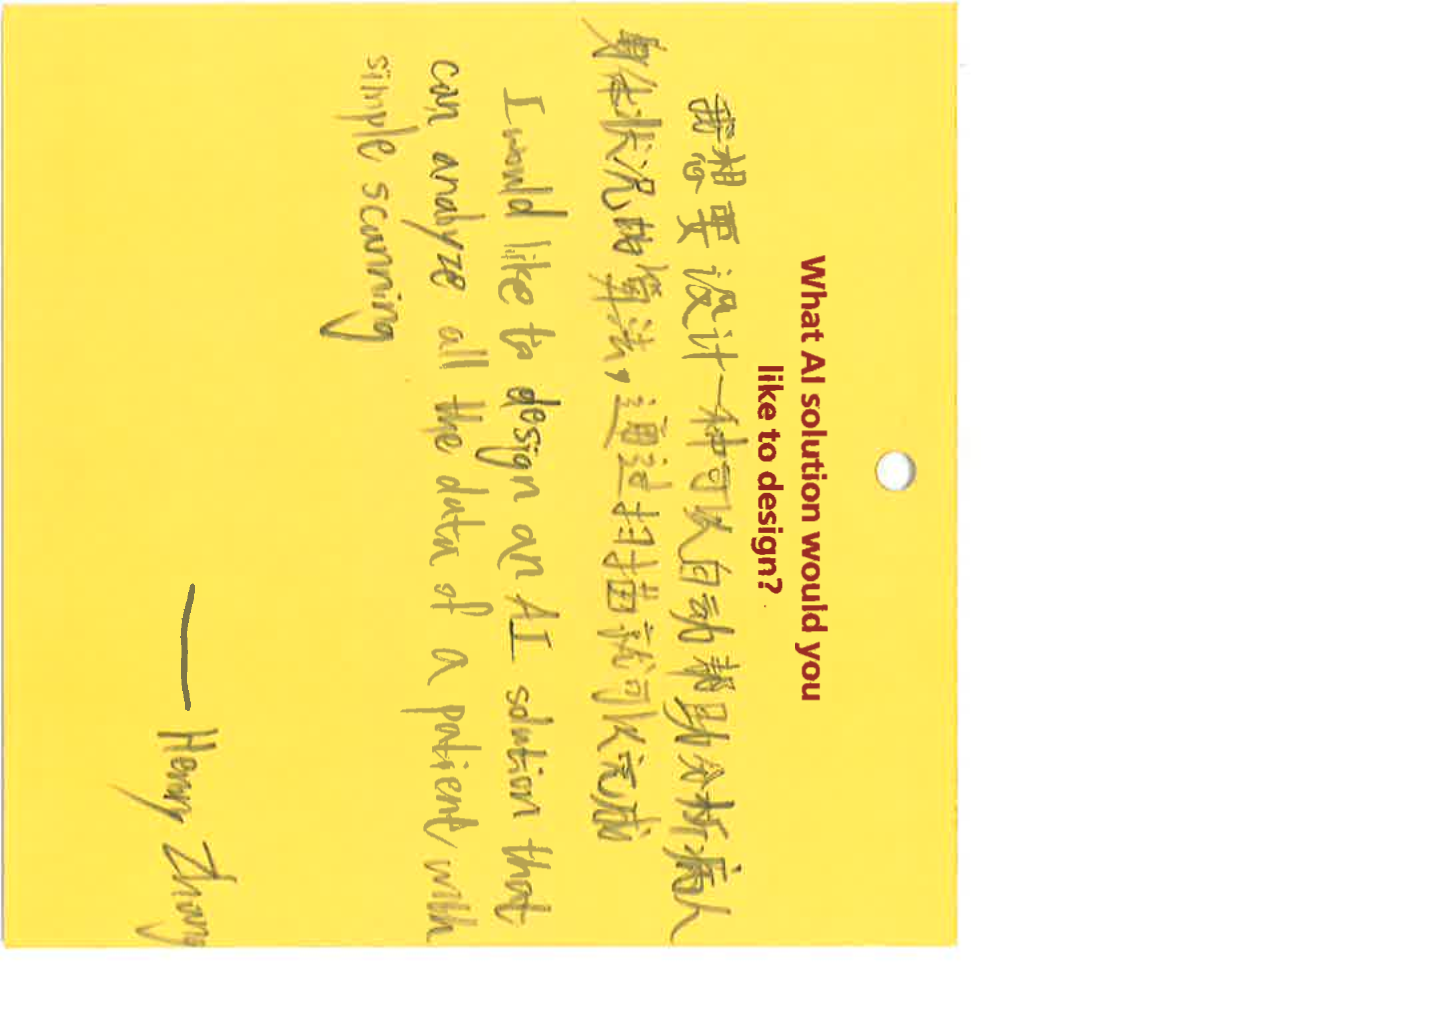 What AI solution would you
like to design?
我想要设计一种可以自动帮助分析病人
身体状况的算法，通过扫描就可以完成
I would like to design an AI solution that
can analyze all the data of a patient with
simple scanning
— Henry Zhang